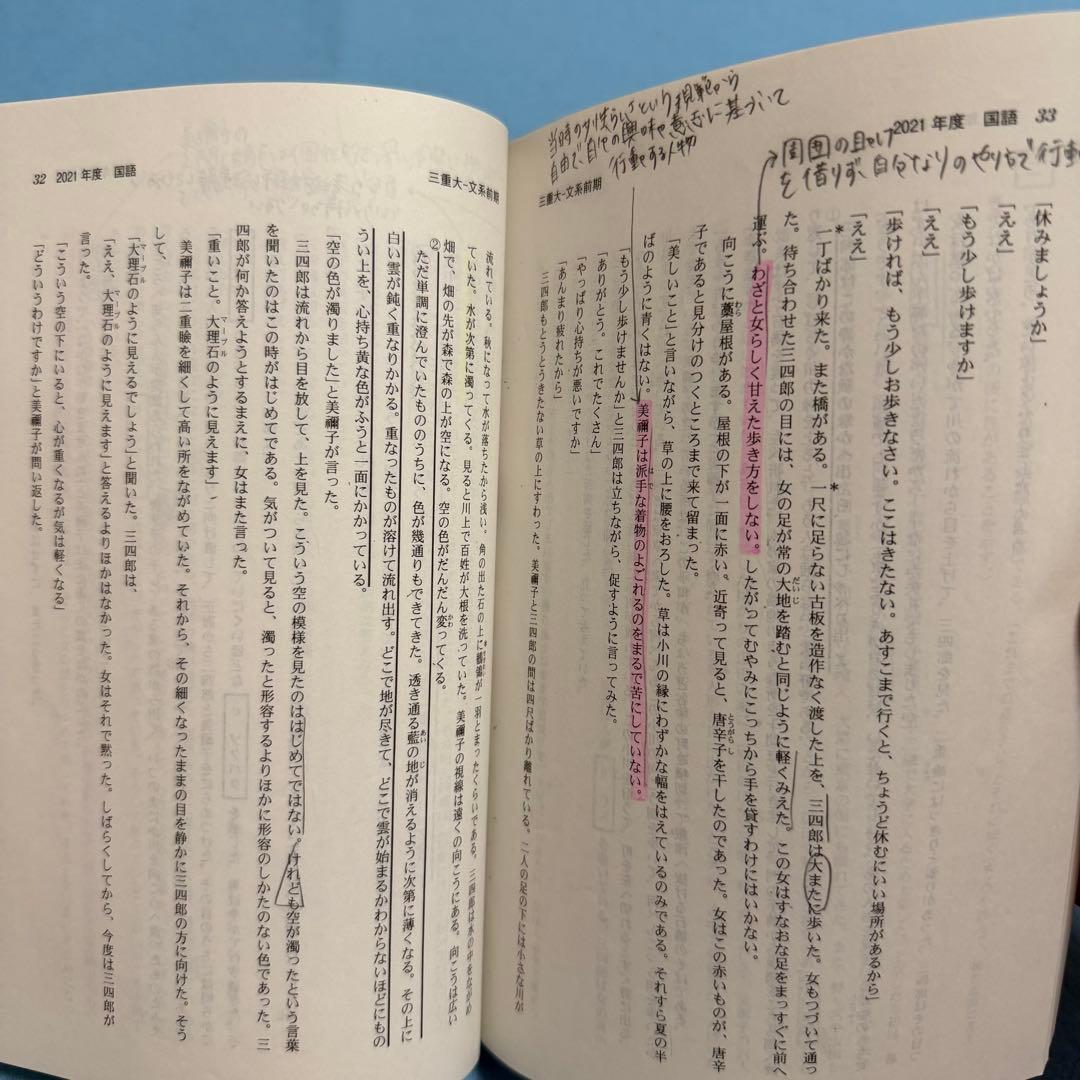 2021年度 国語 33
三重大-文系前期
当時の女性らしさという規範から
自由で、自分の興味や意志に基づいて
行動する人物
周囲の目や
を借りず、自分なりのやり方で行動
「休みましょうか」
「ええ」
「もう少し歩けますか」
「ええ」
「歩ければ、もう少しお歩きなさい。ここはきたない。あすこまで行くと、ちょうど休むにいい場所があるから」
「ええ」
一丁ばかり来た。また橋がある。一尺に足らない古板を造作なく渡した上を、三四郎は大またに歩いた。女もつづいて通っ
た。待ち合わせた三四郎の目には、女の足が常の大地を踏むと同じように軽くみえた。この女はすなおな足をまっすぐに前へ
運ぶ。わざと女らしく甘えた歩き方をしない。したがってむやみにこっちから手を貸すわけにはいかない。
向こうに藁屋根がある。屋根の下が一面に赤い。近寄って見ると、唐辛子を干したのであった。女はこの赤いものが、唐辛
子であると見分けのつくところまで来て留まった。
「美しいこと」と言いながら、草の上に腰をおろした。草は小川の縁にわずかな幅をはえているのみである。それすら夏の半
ばのように青くはない。美禰子は派手な着物のよごれるのをまるで苦にしていない。
「もう少し歩けませんか」と三四郎は立ちながら、促すように言ってみた。
「ありがとう。これでたくさん」
「やっぱり心持ちが悪いですか」
「あんまり疲れたから」
三四郎もとうとうきたない草の上にすわった。美禰子と三四郎の間は四尺ばかり離れている。二人の足の下には小さな川が
32 2021年度 国語
三重大-文系前期
流れている。秋になって水が落ちたから浅い。角の出た石の上に鶺鴒が一羽とまったくらいである。三四郎は水の中をながめ
ていた。水が次第に濁ってくる。見ると川上で百姓が大根を洗っていた。美禰子の視線は遠くの向こうにある。向こうは広い
畑で、畑の先が森で森の上が空になる。空の色がだんだん変ってくる。
②ただ単調に澄んでいたもののうちに、色が幾通りもできてきた。透き通る藍の地が消えるように次第に薄くなる。その上に
白い雲が鈍く重なりかかる。重なったものが溶けて流れ出す。どこで地が尽きて、どこで雲が始まるかわからないほどにもの
うい上を、心持ち黄な色がふうと一面にかかっている。
「空の色が濁りました」と美禰子が言った。
三四郎は流れから目を放して、上を見た。こういう空の模様を見たのははじめてではない。けれども空が濁ったという言葉
を聞いたのはこの時がはじめてである。気がついて見ると、濁ったと形容するよりほかに形容のしかたのない色であった。三
四郎が何か答えようとするまえに、女はまた言った。
「重いこと。大理石のように見えます」
美禰子は二重瞼を細くして高い所をながめていた。それから、その細くなったままの目を静かに三四郎の方に向けた。そう
して、
「大理石のように見えるでしょう」と聞いた。三四郎は、
「ええ、大理石のように見えます」と答えるよりほかはなかった。女はそれで黙った。しばらくしてから、今度は三四郎が
言った。
「こういう空の下にいると、心が重くなるが気は軽くなる」
「どういうわけですか」と美禰子が問い返した。